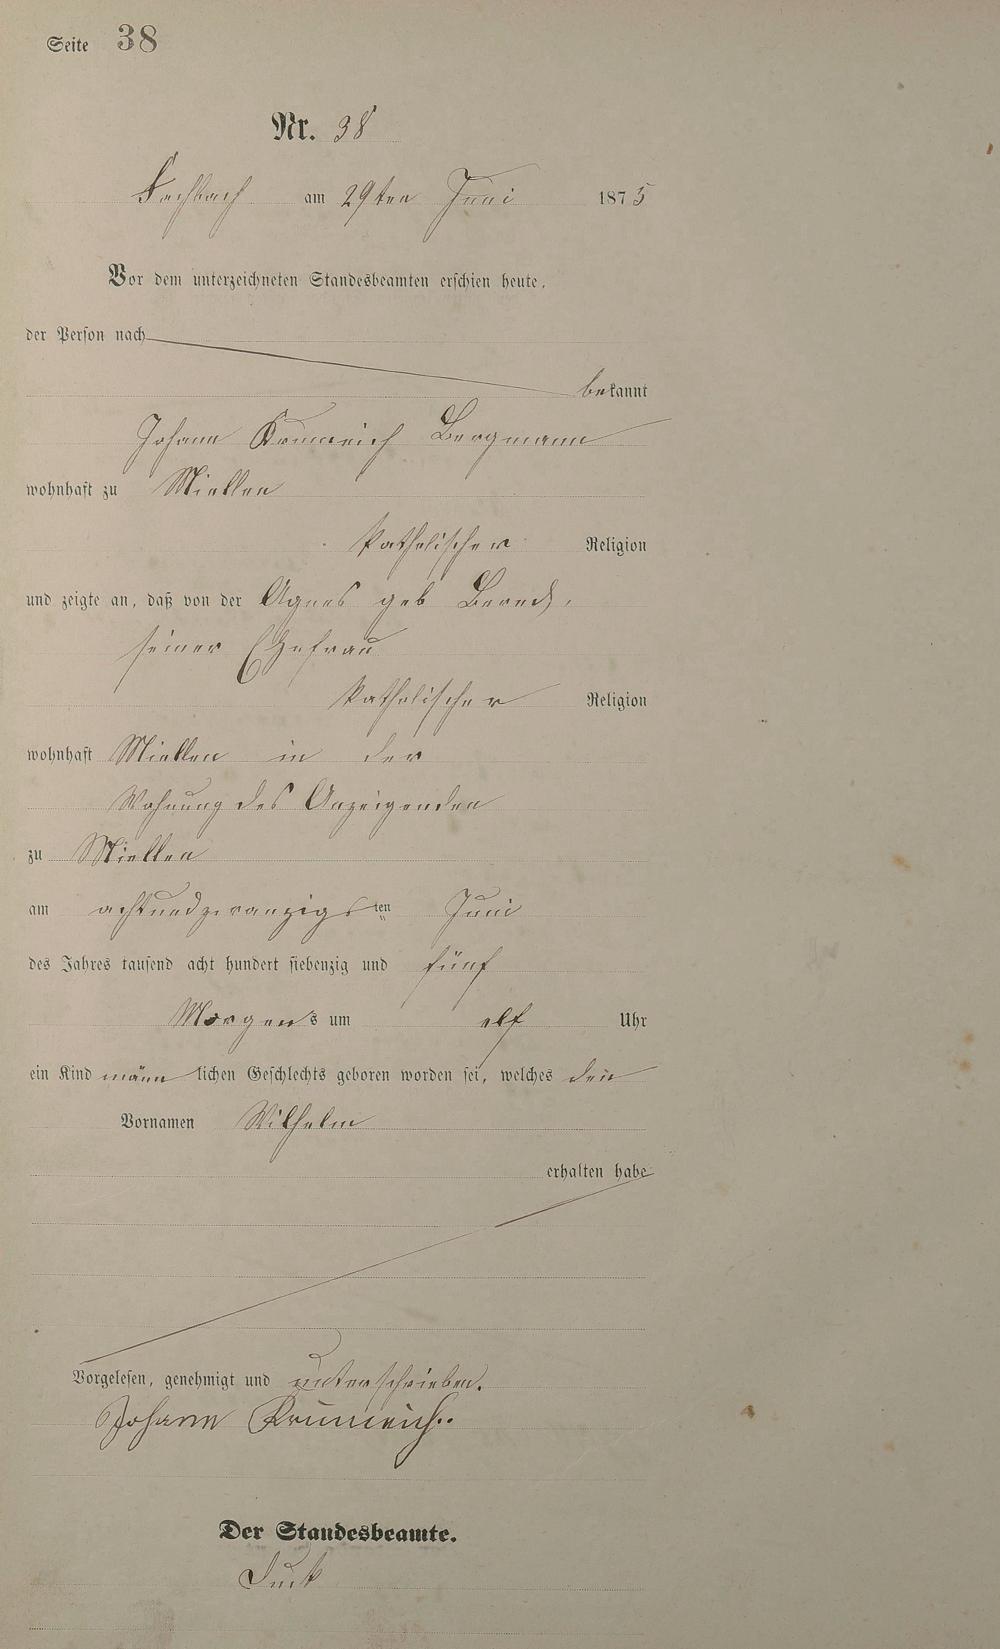 Seite 38
Nr. 38
Fachbach am 29ten Juni 1875
Vor dem unterzeichneten Standesbeamten erschien heute,
der Person nach
bekannt
Johann Krumeich Bergmann
wohnhaft zu Miellen
Katholischer Religion
und zeigte an, daß von der Agnes geb
seiner Ehefrau
Katholischer Religion
wohnhaft Miellen in der
Wohnung des Anzeigenden
zu Miellen
am achtundzwanzigsten Juni
des Jahres tausend acht hundert siebenzig und fünf
Morgens um elf Uhr
ein Kind männlichen Geschlechts geboren worden sei, welches den
Vornamen Wilhelm
erhalten habe
Vorgelesen, genehmigt und unterschrieben.
Johann Krumeich
Der Standesbeamte.